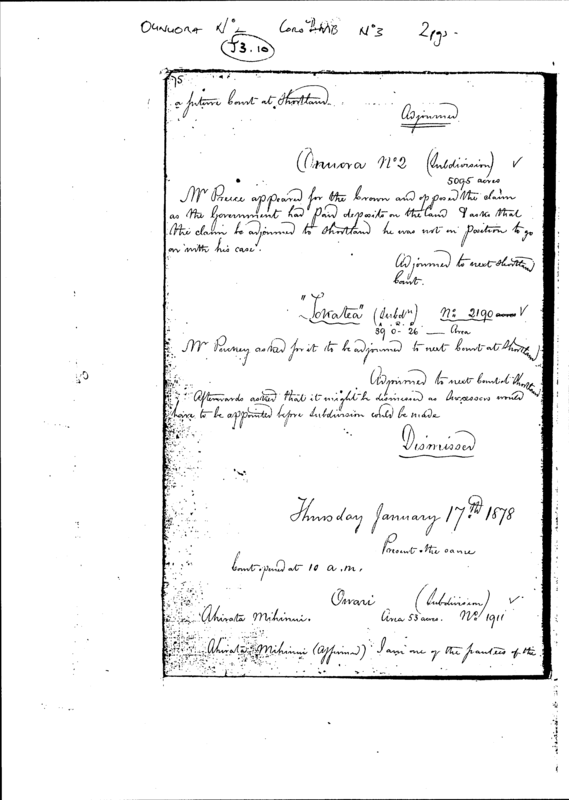 OHUUORA No 2 Coro MB No 3 2pgs.
J3.10
75
a future Court at Shortland.
Adjourned
Onuora No 2 (Subdivision) ✓
5095 acres
Mr Preece appeared for the Crown and opposed the claim
as the Government had paid deposits on the land & asks that
the claim be adjourned to Shortland he was not in position to go
on with his case.
Adjourned to next Shortland
Court.
"Tokatea" (Subdn) No 2190 ✓
39 0 - 26 Area
Mr asked for it to be adjourned to next Court at Shortland
Adjourned to next Court at Shortland
Afterwards asked that it might be dismissed as Assessors would
have to be appointed before Subdivision could be made
Dismissed
Thursday January 17th 1878
Present the same
Court opened at 10 a.m.
Owari (Subdivision) ✓
Ahirata Mihinui. Area 53 acres. No 1911
Ahirata Mihinui (Affirmed) I am one of the grantees of the